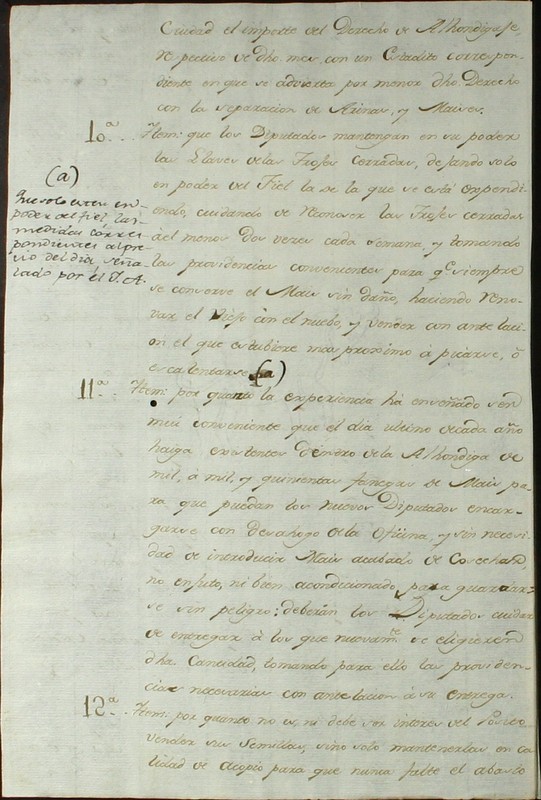 Ciudad el importe del Derecho de Alhondiga re,
respectivo de dho. mes, con un Estadito corresponn-
diente en que se advierta por menor dho. Derecho
con la separacion de Arinas, y Maises.
10ª... Ytem: que los Diputados mantengan en su poder
las Llaves de las Trojes cerradas, dejando solo
en poder del Fiel la de la que se está expendi-
endo, cuidando de reconoser las Trojes cerradas
al menos dos veces cada semana, y tomando
las providencias convenientes para qe. siempre
se conserve el Mais sin daño, haciendo reno-
var el viejo con el nuebo, y vender con antelaci-
on el que estubiere mas proximo à picarse, ô
escalentarse (a)
(a)
Que solo esten en
poder del fiel las
medidas corres-
pondientes al pre-
cio del dia seña-
lado por el
11ª.. Ytem: por quanto la experiencia há enseñado ser
mui conveniente que el dia ultimo de cada año
haiga existentes dentro de la Alhondiga de
mil, à mil, y quinientas fanegas de Mais pa-
ra que puedan los nuevos Diputados encar-
garse con desahogo de la Oficina, y sin necesi-
dad de introducir Mais acabado de Cosechar,
no enjuto, ni bien acondicionado para guardar-
se sin peligro: deberán los Diputados cuidar
de entregar à los que nuevamte. se eligieren
dha. Cantidad, tomando para ello las providen-
cias necesarias con antelacion à su entrega.
12ª.. Ytem: por quanto no es, ni debe ser interes del Posito
vender sus semillas, sino solo mantenerlas en ca-
lidad de acopio para que nunca falte el abasto